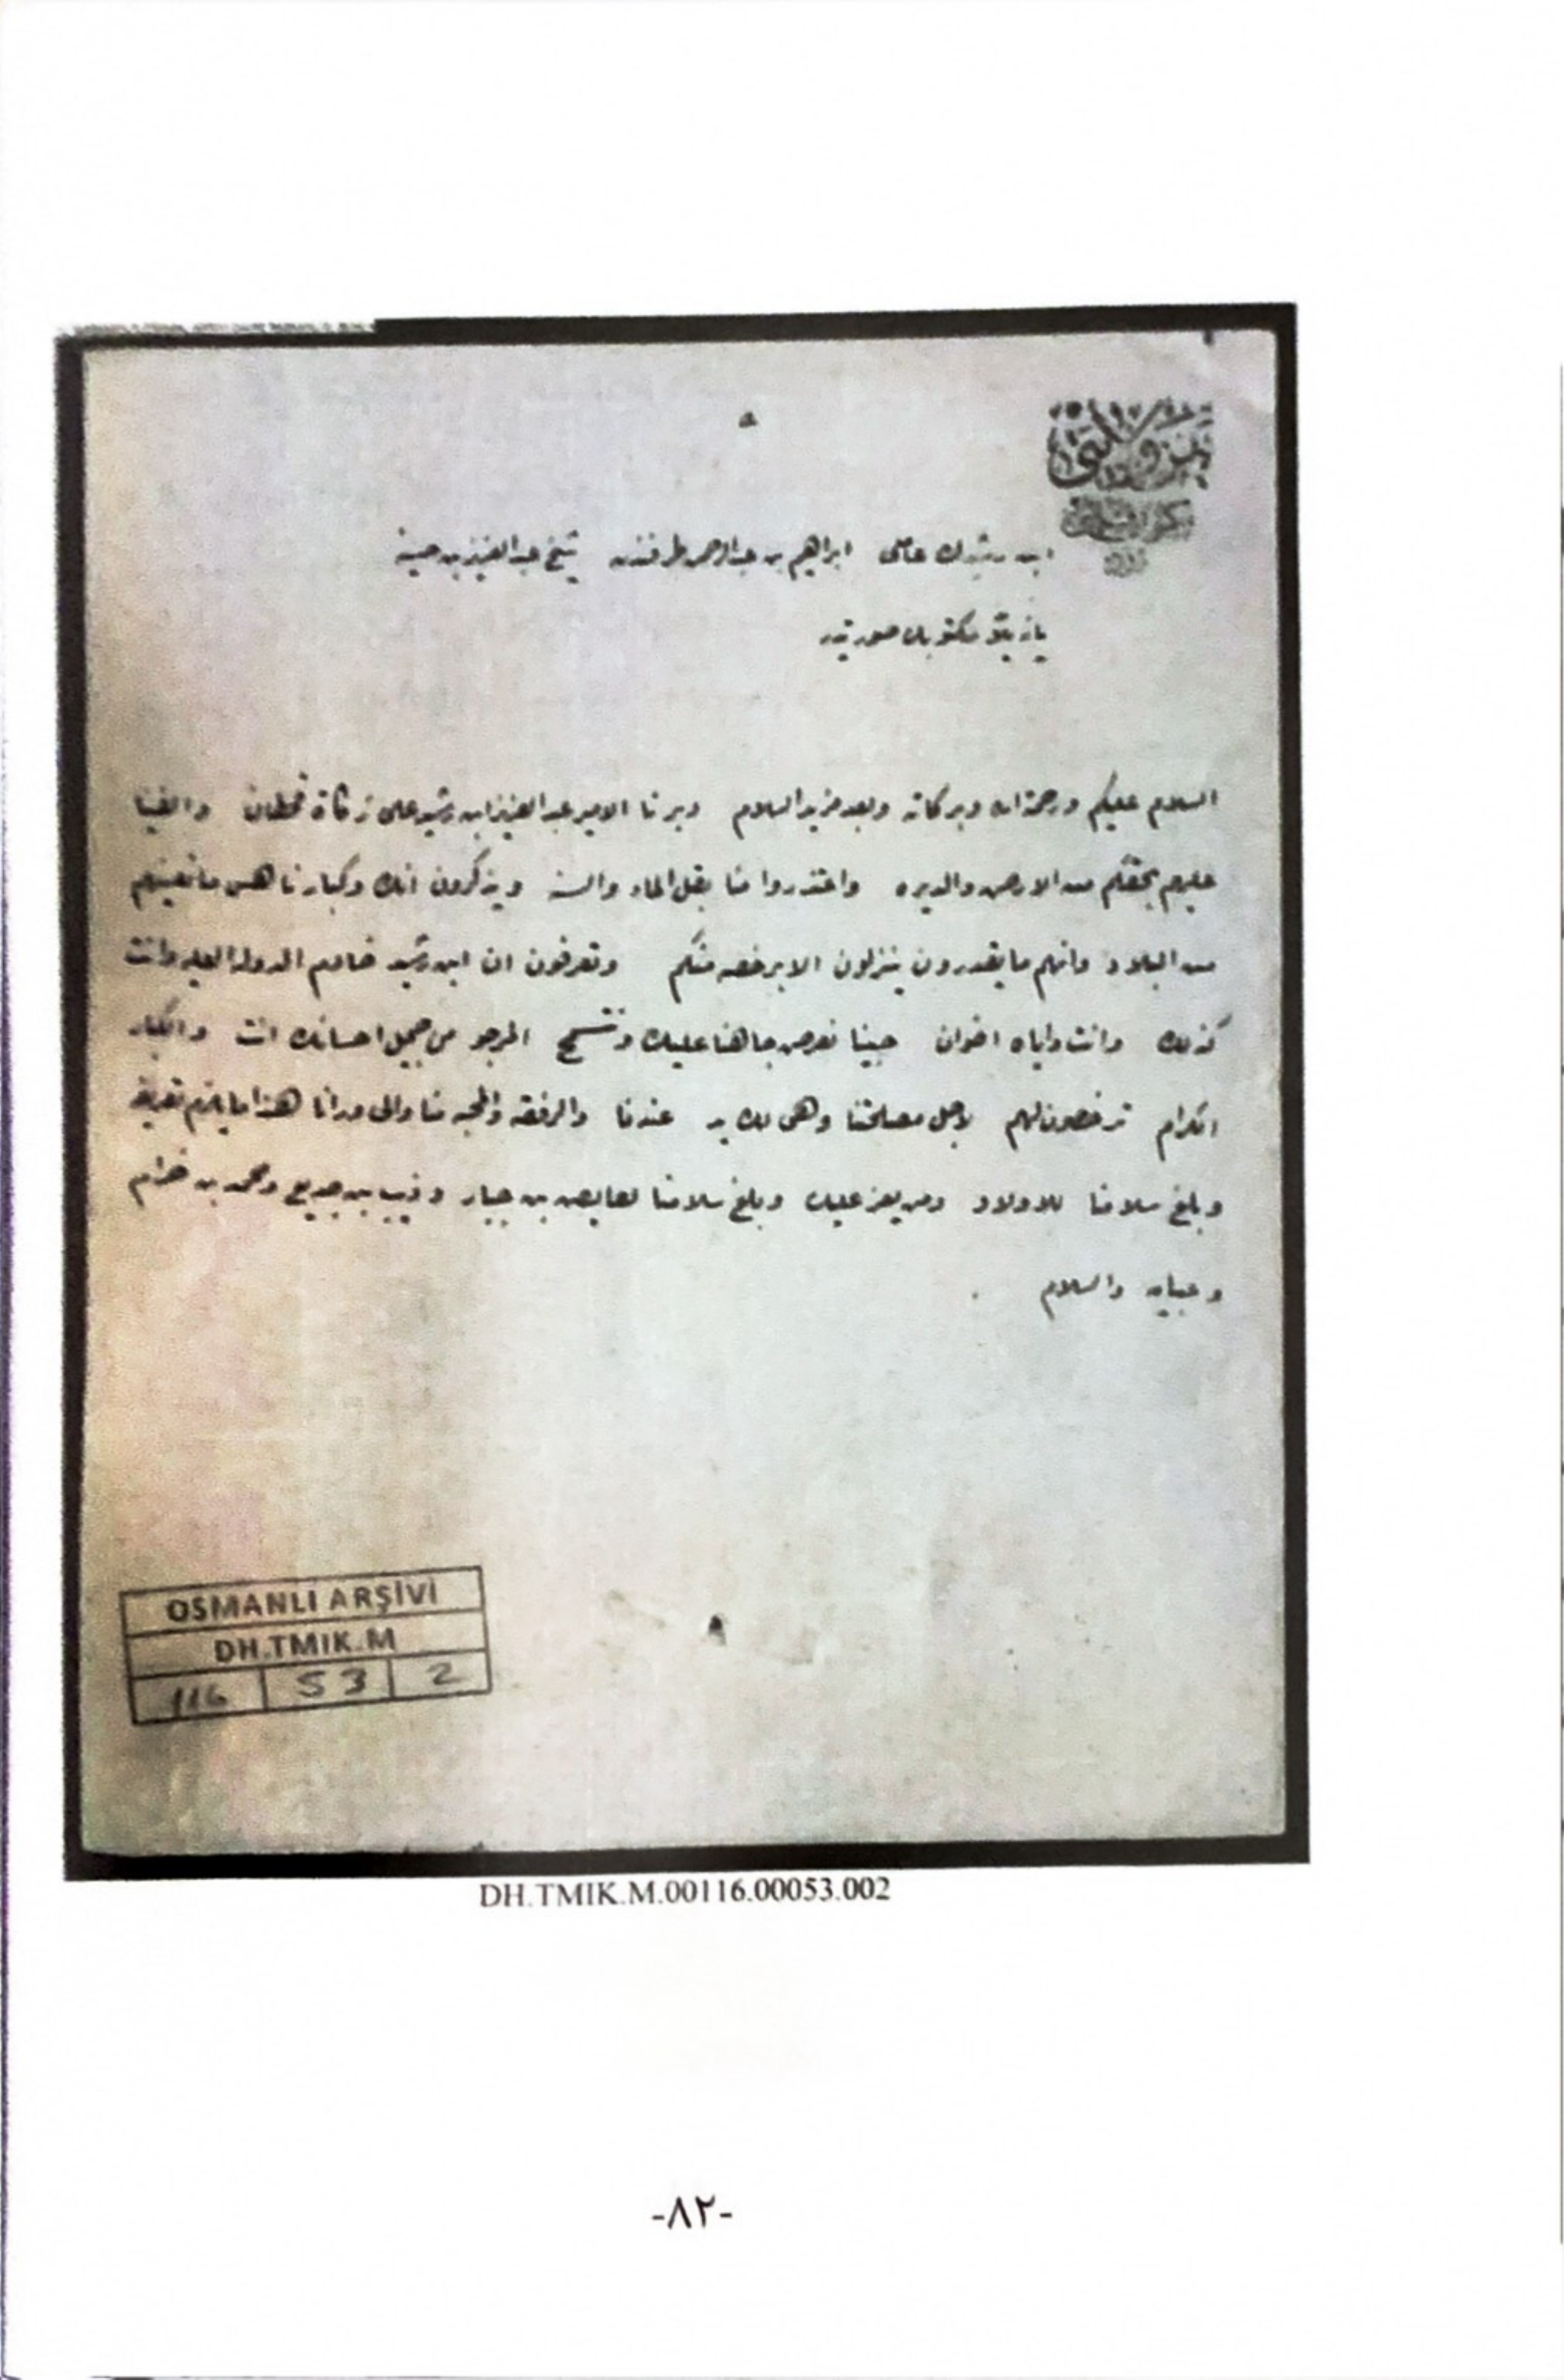 ابن رشيدك عاملى ابراهيم بن عبدالرحمن طرفندن شيخ عبدالعزيز بن
يازيلان مكتوبك صورتيدر
السلام عليكم ورحمة الله وبركاته وبعد مزيد السلام وبرنا الامير عبدالعزيز ابن رشيد على زكاة قحطان والفينا
عليهم بحقكم من الارض والديره واعتذروا منا بقل الماء والسنة ويذكرون انك وكبار ناهس مانعينهم
من البلاد وانهم ما يقدرون ينزلون الا برخصه منكم وتعرفون ان ابن رشيد خادم الدوله العليه وانت
كذلك وانت واياه اخوان جينا نعرض جاهنا عليك المرجو من جميل احسانك انت والكبار
الكرام ترخصون لهم لاجل مصلحتنا وهى لك يد عندنا والرفقه والمحبه منا والى ورانا هذا ما يلزم تعريفه
وبلغ سلامنا للاولاد ومن يعز عليك وبلغ سلامنا لعايض بن جبار وذيب بن جديع ومحمد بن خرام
والسلام
OSMANLI ARŞİVİ
DH.TMIK.M
116 53 2
DH.TMIK.M.00116.00053.002
-٨٢-